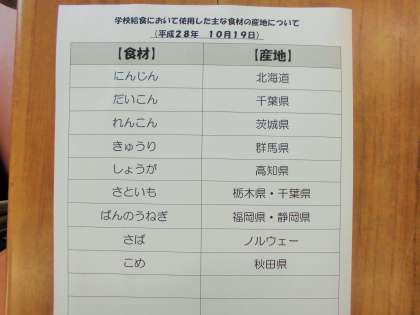 学校給食において使用した主な食材の産地について
（平成２８年　１０月１９日）
【食材】 【産地】
にんじん 北海道
だいこん 千葉県
れんこん 茨城県
きゅうり 群馬県
しょうが 高知県
さといも 栃木県・千葉県
ばんのうねぎ 福岡県・静岡県
さば ノルウェー
こめ 秋田県